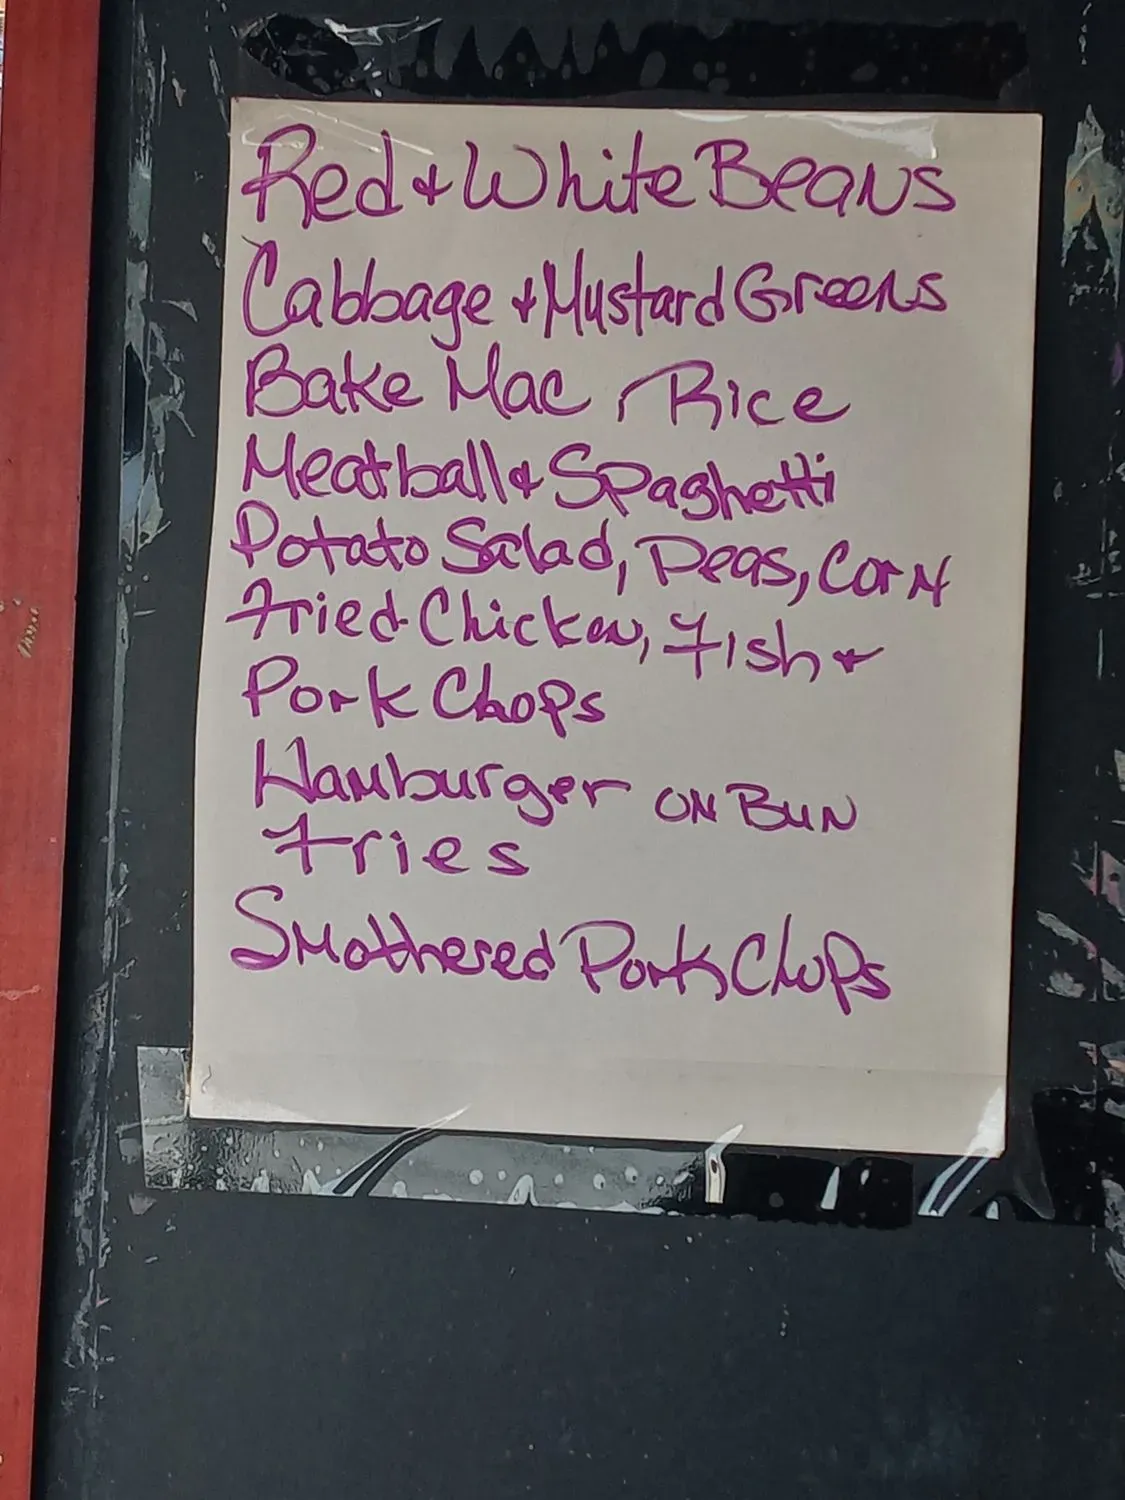 Red & White Beans
Cabbage & Mustard Greens
Bake Mac, Rice
Meatball & Spaghetti
Potato Salad, Peas, Corn
Fried Chicken, Fish &
Pork Chops
Hamburger on Bun
Fries
Smothered Pork Chops